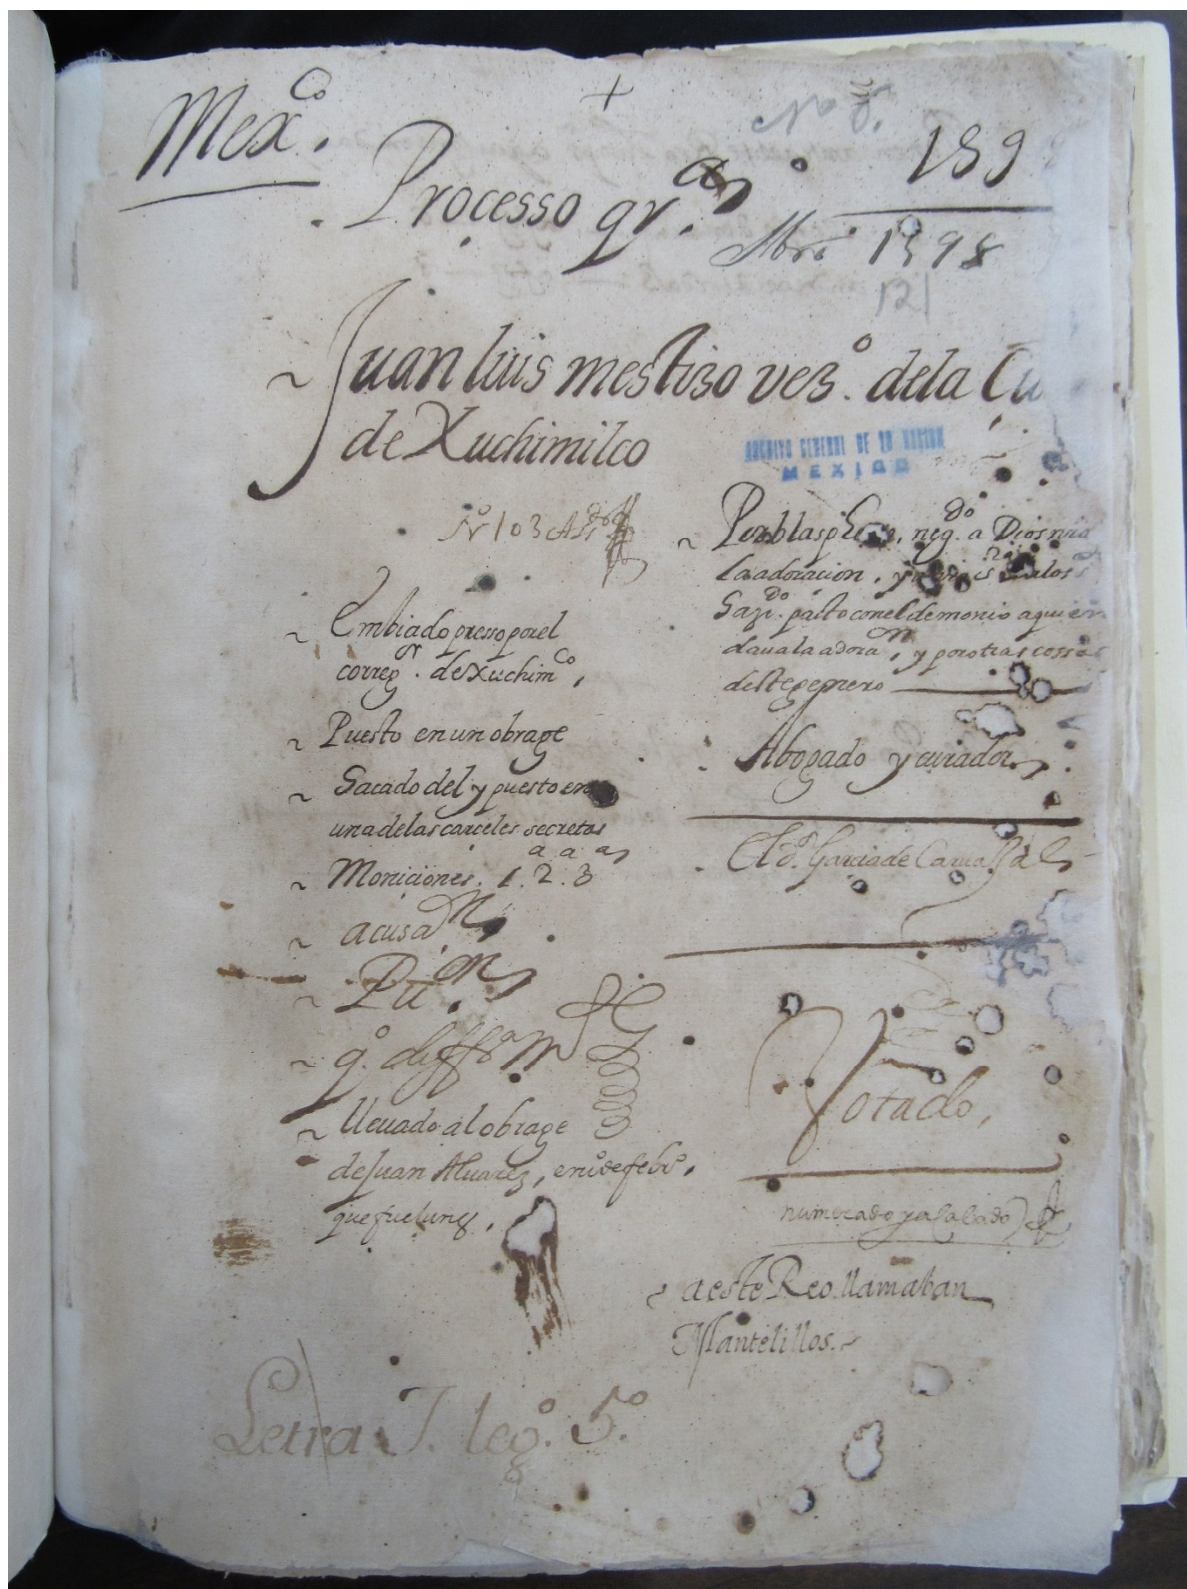 Mexco.
+
No 8.
189
Processo qra.
Abril 1598
121
Juan luis mestizo vezo. dela Cu
de Xuchimilco
ARCHIVO GENERAL DE LA NACION
MEXICO
No 103
~ Embiado presso por el
corregr. de Xuchimco,
~ Puesto en un obrage
~ Sacado del y puesto en
una de las carceles secretas
~ Moniciones. 1.a 2.a 3a
~ acusaon
~ Puon.
~ qo. diffva
~ lleuado al obrage
de Juan Aluarez, en de febo,
que fue lunes,
~ Por blasphemo, negdo. a Dios
la adoracion, y a los
Sazdo. pacto con el demonio a quien
daua la adoraon, y por otras cossas
deste genero
Abogado y curador
El dr. Garcia de Carauajal
Votado,
numerado y asalado
~ a este Reo llamaban
Mantelillos.
Letra J. lego. 5o.